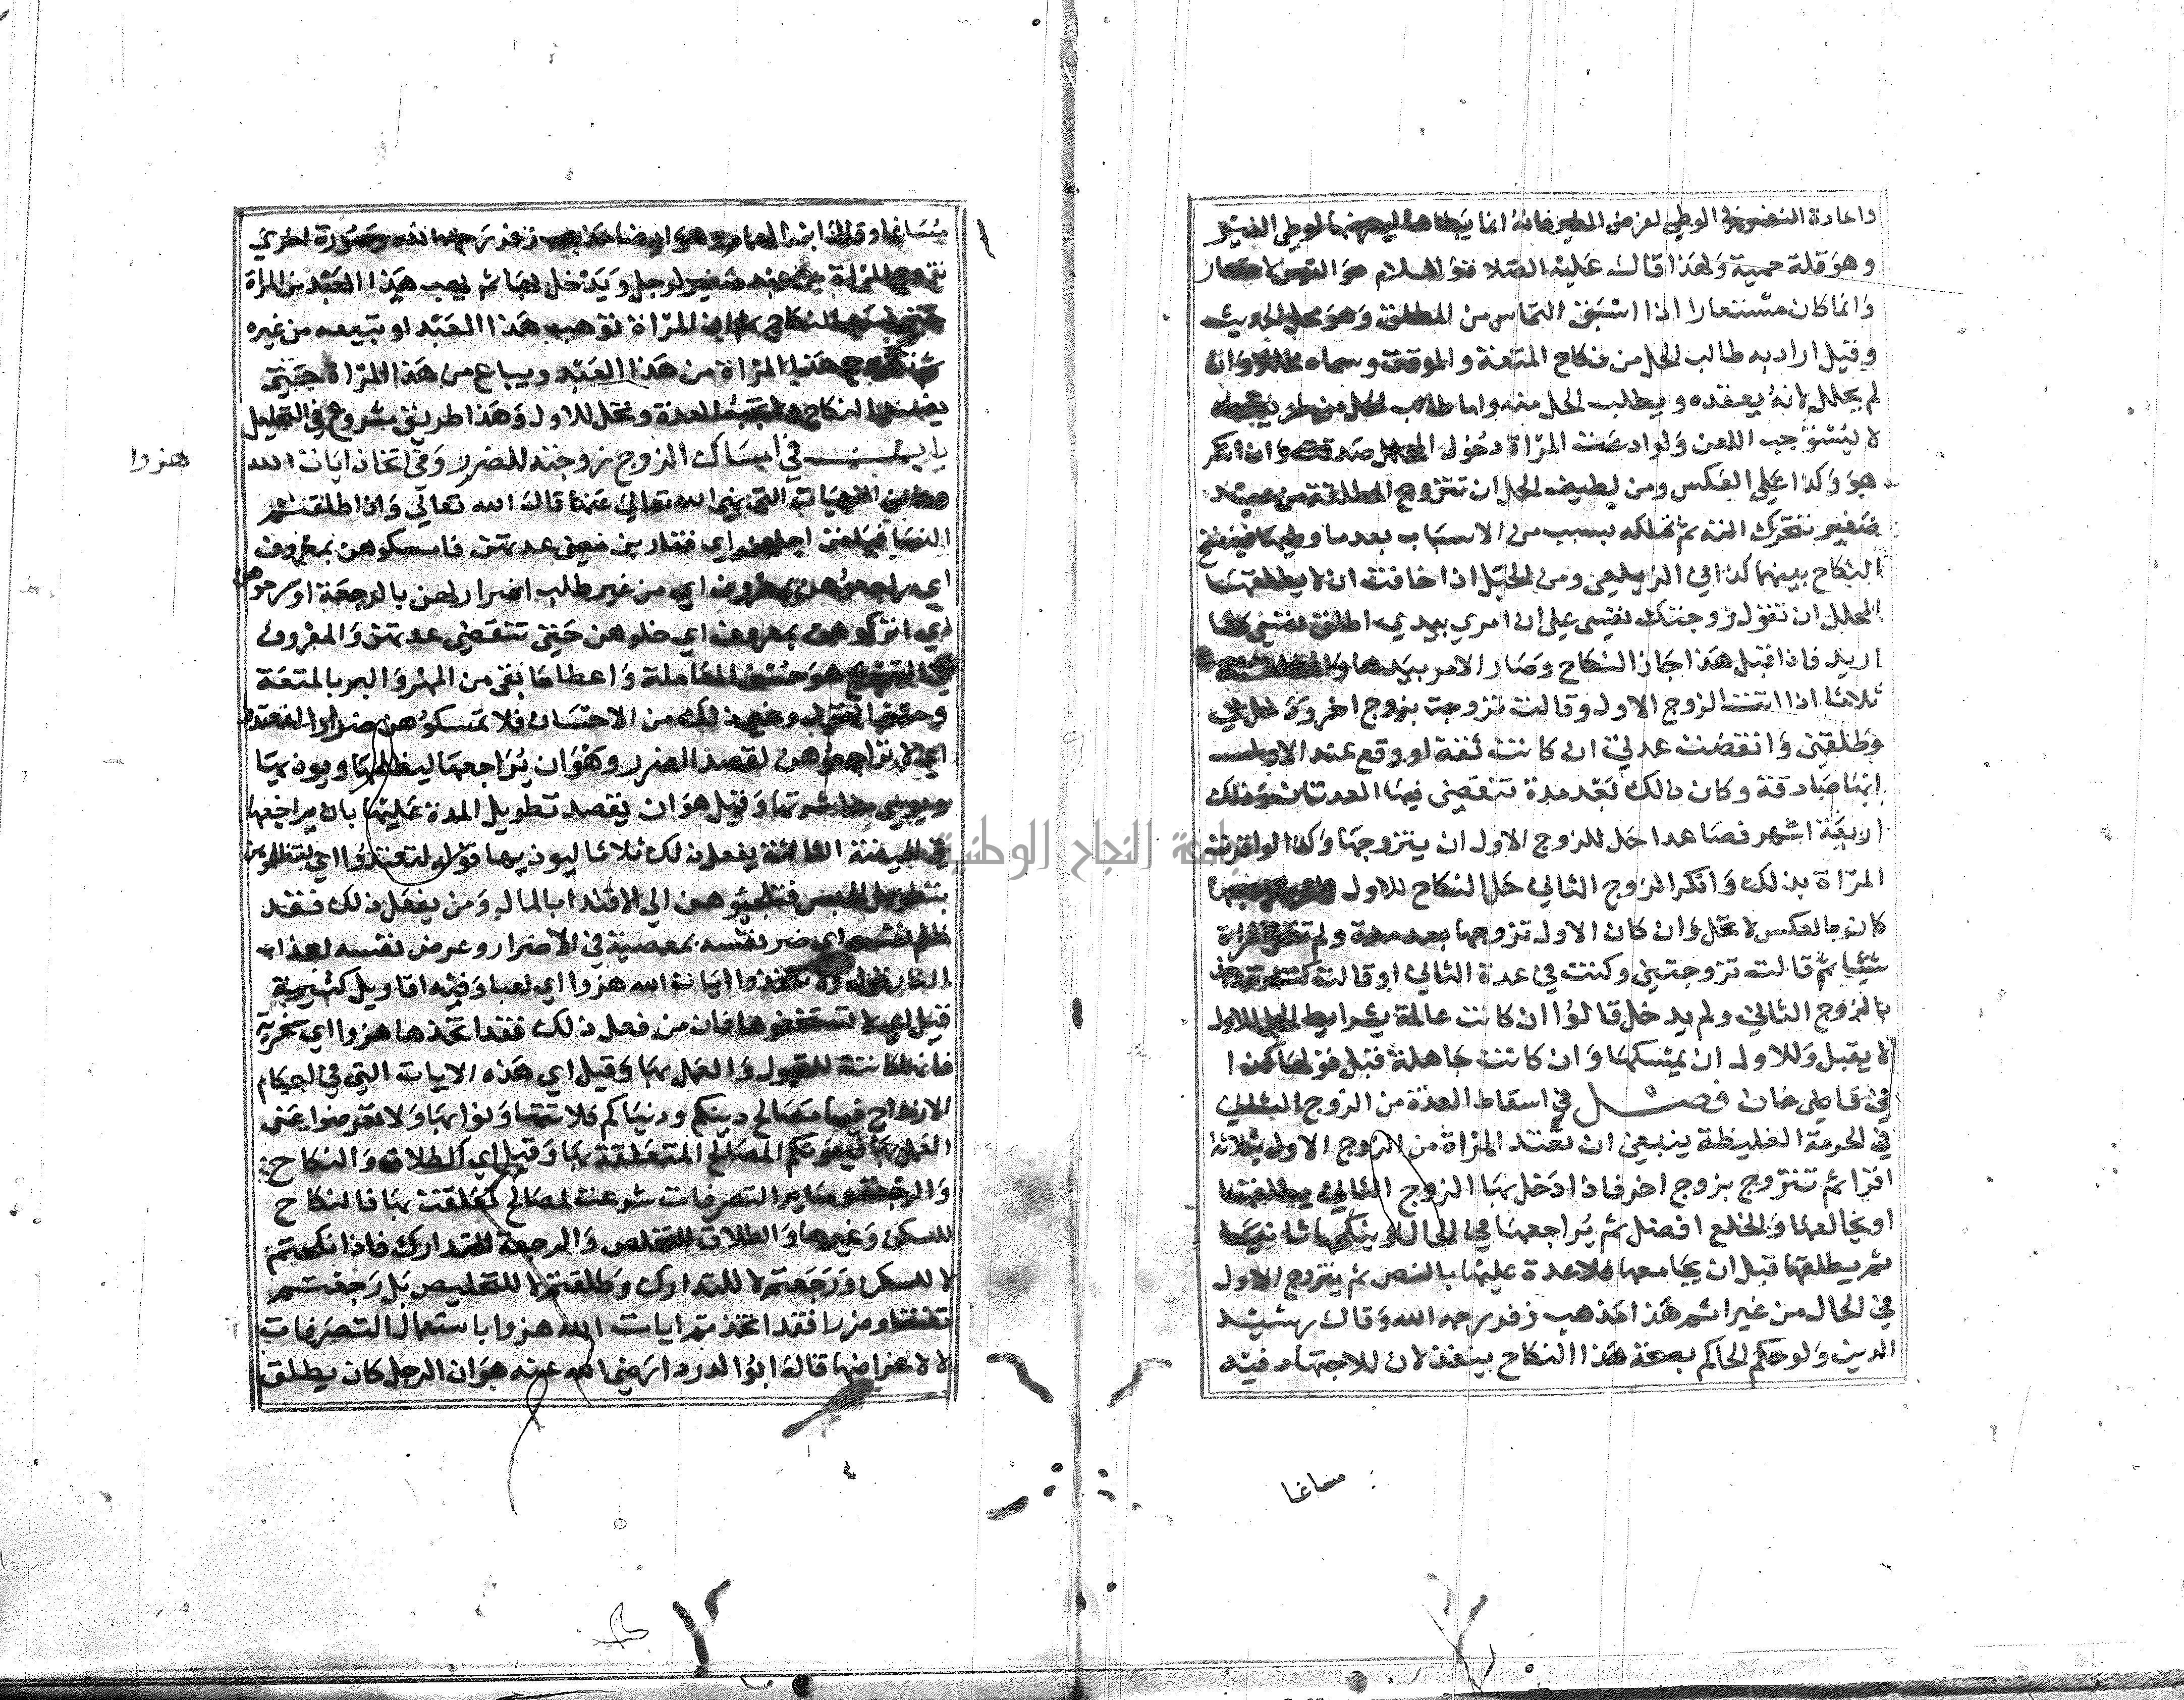 واعادة النفس في الوطي لغرض الغير فانه انما
وهو قلة حمية ولهذا قال عليه الصلاة والسلام هو التيس
وانما كان مستعارا اذا استبق التماس من المطلق وهو محل الحديث
وقيل اراد به طالب الحل من نكاح المتعة والموقت وسماه محللا وان
لم يحلل لانه يعقده ويطلب الحل منه واما طالب الحل من
لا يستوجب اللعن ولو ادعت المراة دخول المحلل صدقت وان انكر
هو وكذا على العكس ومن لطيف الحل ان تتزوج المطلقة من عبد
صغير تتحرك الته ثم تملكه بسبب من الاسباب بعد ما وطيها فيفسخ
النكاح بينهما كذا في الزيلعي ومن الحيل اذا خافت ان لا يطلقها
المحلل ان تقول زوجتك نفسي على ان امري بيدي اطلق نفسي كلما
اريد فاذا قبل هذا جاز النكاح وصار الامر بيدها والمطلقة
ثلاثا اذا اتت الزوج الاول وقالت تزوجت بزوج اخر ودخل بي
وطلقني وانقضت عدتي ان كانت ثقة او وقع عند الاول
انها صادقة وكان ذلك بعد مدة تنقضي فيها العدتان وذلك
اربعة اشهر فصاعدا حل للزوج الاول ان يتزوجها وكذا لو اقرت
المراة بذلك وانكر الزوج الثاني حل النكاح للاول
كان بالعكس لا تحل وان كان الاول تزوجها بعد مدة ولم تقل المراة
شيئا ثم قالت تزوجتني وكنت في عدة الثاني او قالت كنت تزوجت
بالزوج الثاني ولم يدخل قالوا ان كانت عالمة بشرايط الحل للاول
لا يقبل وللاول ان يمسكها وان كانت جاهلة قبل قولها كذا
في قاضي خان فصل في اسقاط العدة من الزوج الثاني
في الحرمة الغليظة ينبغي ان تعتد المراة من الزوج الاول بثلاثة
اقرا ثم تتزوج بزوج اخر فاذا دخل بها الزوج الثاني يطلقها
او يخالعها والخلع افضل ثم يراجعها في الحال او ينكحها ثانيا
ثم يطلقها قبل ان يجامعها فلا عدة عليها بالنص ثم يتزوج الاول
في الحال من غير اثم هذا مذهب زفر رحمه الله وقال رشيد
الدين ولو حكم الحاكم بصحة هذا النكاح ينفذ لان للاجتهاد فيه
مساغا
مساغا وقال ابن الهمام وهو ايضا مذهب زفر رحمه الله وصورة اخري
تتزوج المراة من عبد صغير لرجل ويدخل بها ثم يهب هذا العبد من المراة
النكاح ثم ان المراة توهب هذا العبد او تبيعه من غيره
ثم تتزوج هذه المراة من هذا العبد ويباع من هذا المراة حتى
النكاح العدة وتحل للاول وهذا طريق مشروع في التحليل
باب في امساك الزوج زوجته للضرر وفي اتخاذ ايات الله
هزوا
هما من المنهيات التي نهى الله تعالى عنها قال الله تعالي واذا طلقتم
النسا فبلغن اجلهن اي فقاربن مضي عدتهن فامسكوهن بمعروف
اي راجعوهن بمعروف اي من غير طلب اضرار لهن بالرجعة او سرحوهن
اي اتركوهن بمعروف اي خلوهن حتى تنقضي عدتهن والمعروف
في التسريح هو حسن المعاملة واعطا ما بقي من المهر والبر بالمتعة
وحسن القول وغير ذلك من الاحسان فلا تمسكوهن ضرارا لتعتدوا
اي لا تراجعوهن لقصد الضرر وهو ان يراجعها ليظلمها ويوذيها
ويسي معاشرتها وقيل هو ان يقصد تطويل المدة عليها بان يراجعها
في الحيضة الثالثة يفعل ذلك ثلاثا ليوذيها قوله لتعتدوا اي لتظلموهن
بتطويل الحبس فتلجئوهن الى الافتدا بالمال ومن يفعل ذلك فقد
ظلم نفسه اي ضر نفسه بمعصية في الاضرار وعرض نفسه لعذاب
النار قوله ولا تتخذوا ايات الله هزوا اي لعبا وفيه اقاويل كثيرة
قيل اي لا تستخفوها فان من فعل ذلك فقد اتخذها هزوا اي سخرية
للقبول والعمل بها وقيل اي هذه الايات التي في احكام
الازواج فيها مصالح دينكم ودنياكم فلا تتهاونوا بها ولا تعرضوا عن
العمل بها فيفوتكم المصالح المتعلقة بها وقيل اي الطلاق والنكاح
والرجعة وساير التصرفات شرعت لمصالح تعلقت بها فالنكاح
للسكن وغيرها والطلاق للتخلص والرجعة للتدارك فاذا نكحتم
لا للسكن ورجعتم لا للتدارك وطلقتم لا للتخليص بل رجعتم
وضررا فقد اتخذتم ايات الله هزوا باستعمال التصرفات
لا لاغراضها قال ابو الدردا رضي الله عنه هو ان الرجل كان يطلق
جامعة النجاح الوطنية